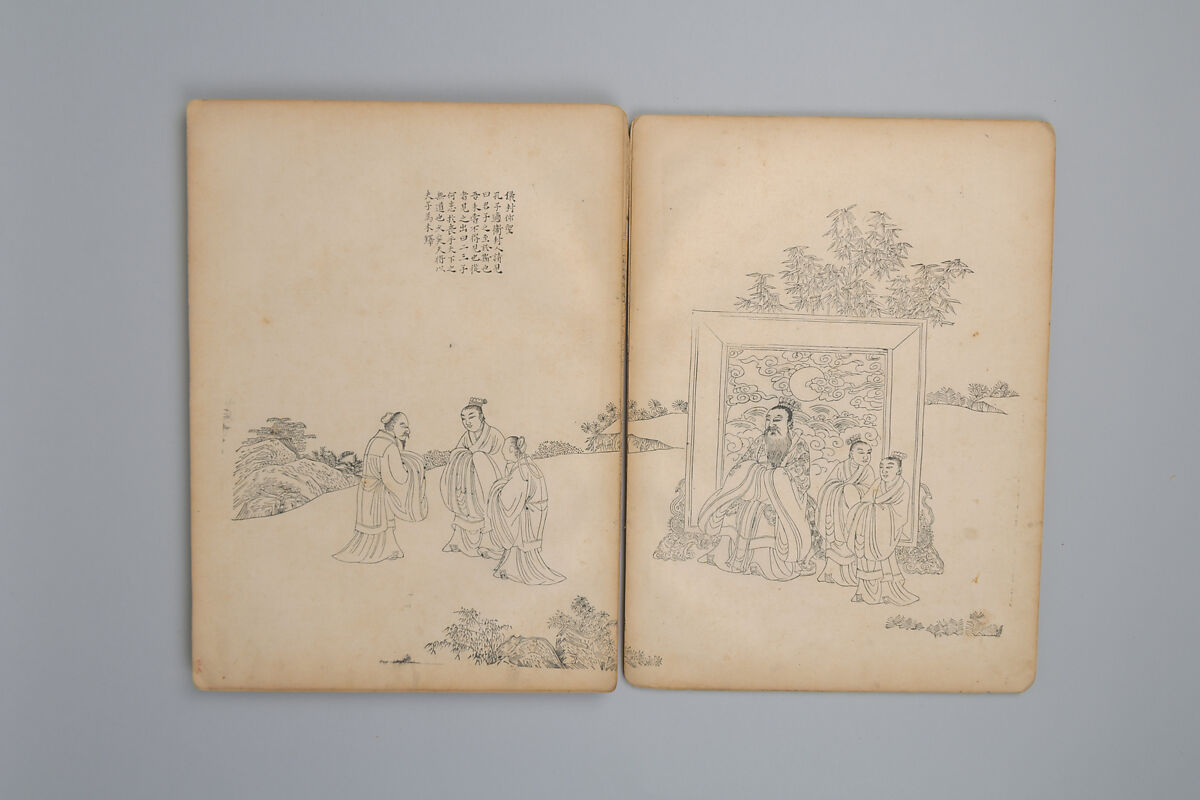 儀封仰聖
孔子適衛封人請見
曰君子之至於斯也
吾未嘗不得見也從
者見之出曰二三子
何患於喪乎天下之
無道也久矣天將以
夫子為木鐸